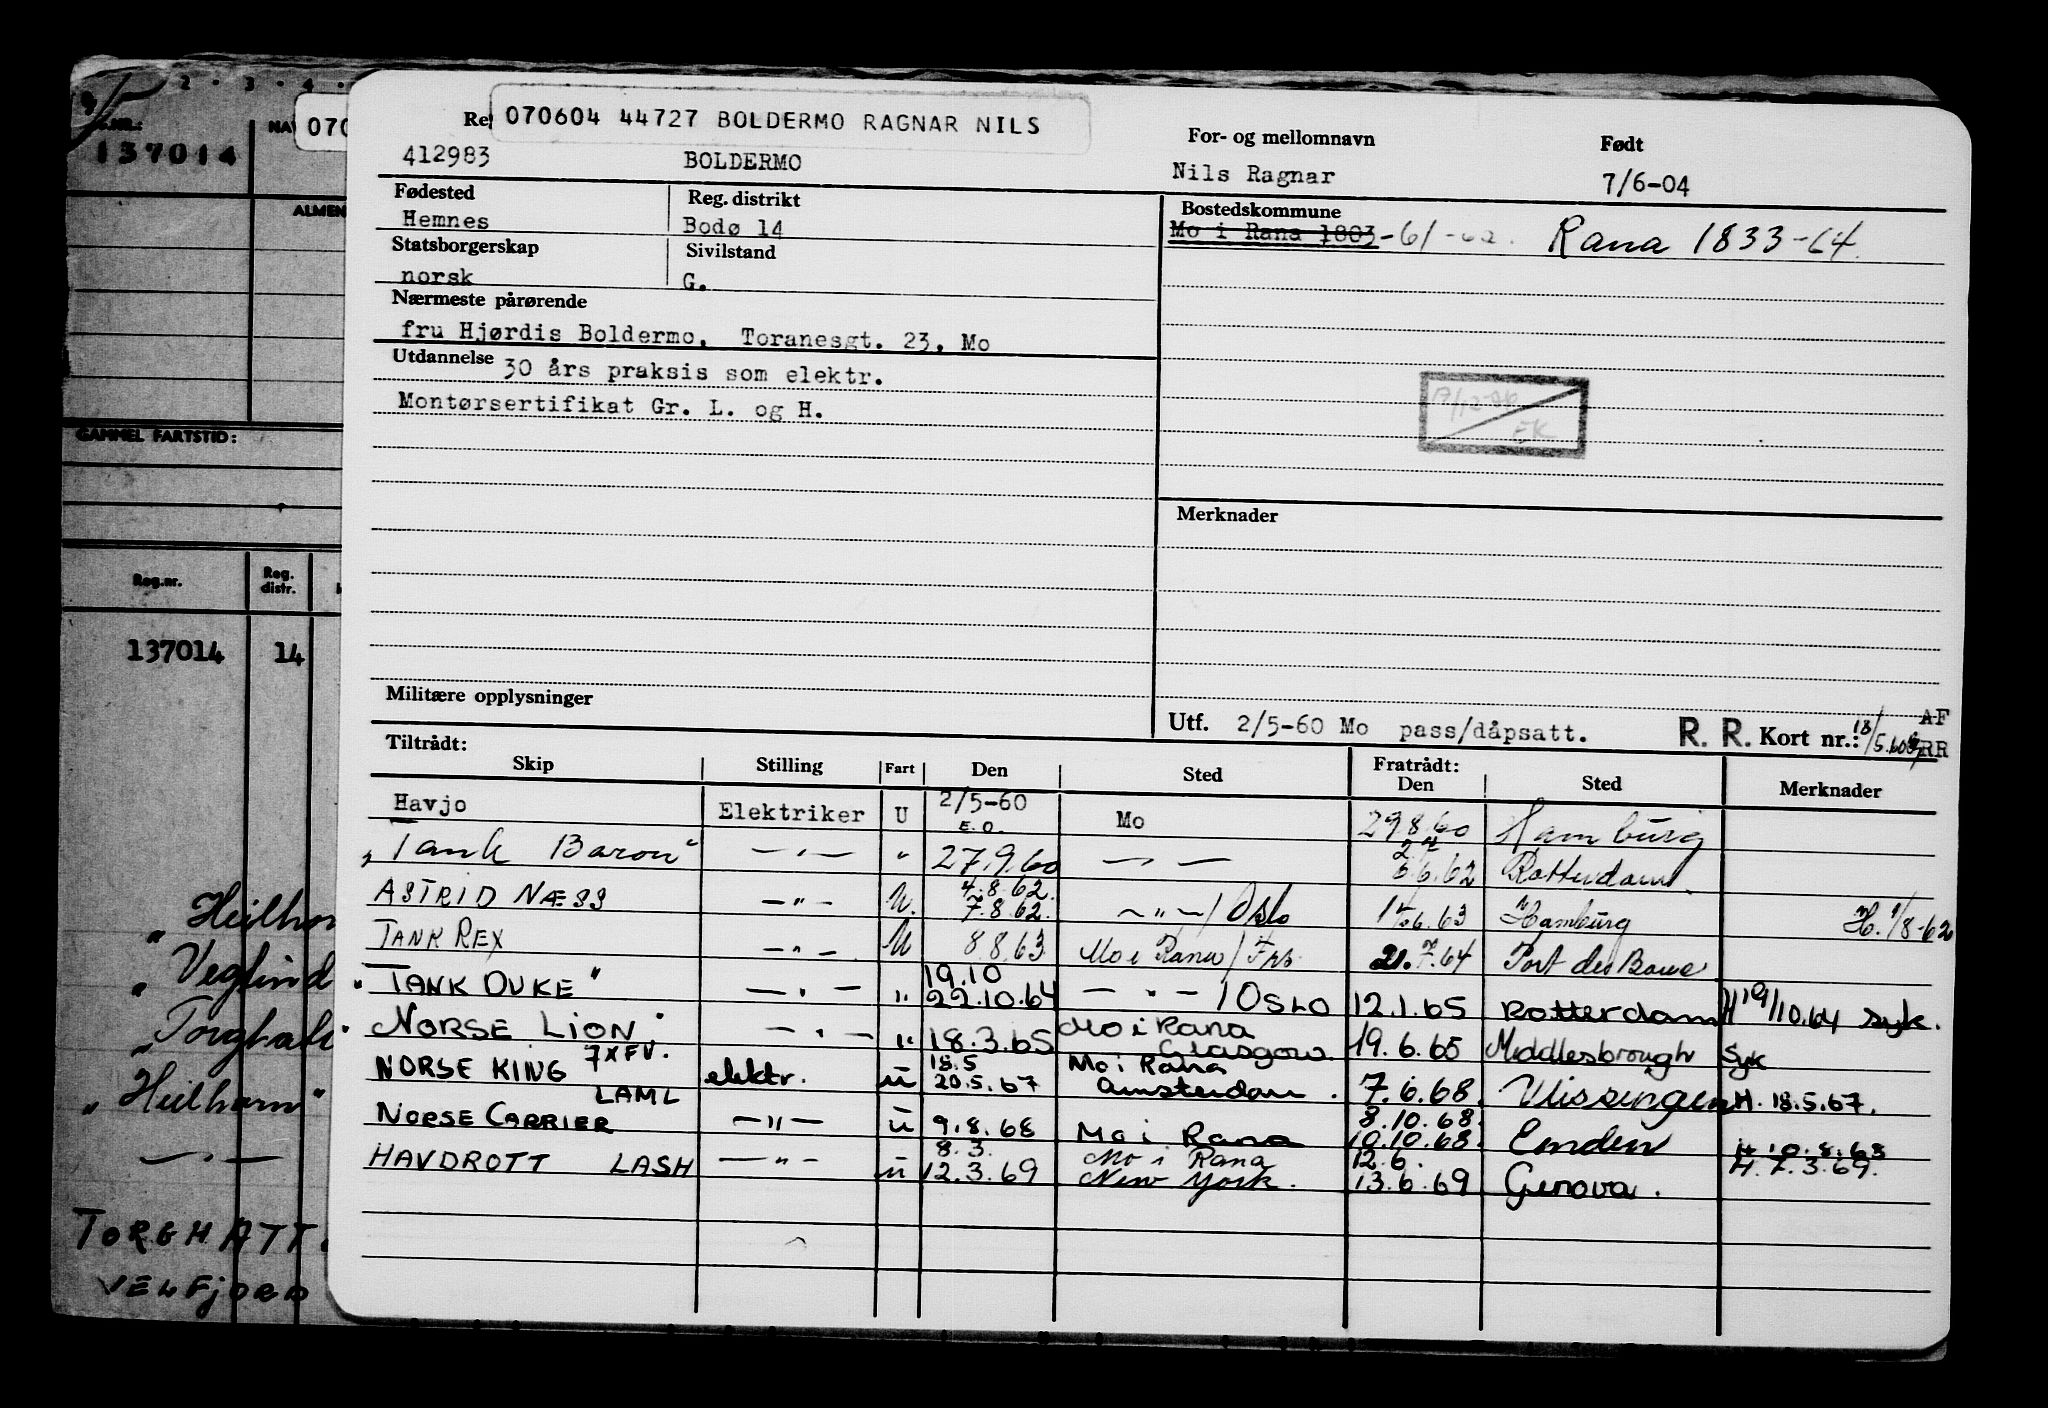 2 · 3 · 4 ·
NAV
070
137014
ALMEN
GAMMEL FARTSTID:
Reg.nr.
Reg. distr.
137014 14
„Heilhor
„Veglind
„Torghatt
„Heilhorn"
— " —
TORGHATT
VELFJORD
070604 44727 BOLDERMO RAGNAR NILS
Re
For- og mellomnavn
Født
412983 BOLDERMO Nils Ragnar 7/6-04
Fødested Reg. distrikt Bostedskommune
Hemnes Bodø 14 Mo i Rana 1803-61-62. Rana 1833-64
Statsborgerskap Sivilstand
norsk G.
Nærmeste pårørende
fru Hjørdis Boldermo, Toranesgt. 23, Mo
Utdannelse 30 års praksis som elektr.
Montørsertifikat Gr. L. og H.
EK
Merknader
Militære opplysninger
Utf. 2/5-60 Mo pass/dåpsatt. R. R. Kort nr.:
AF
RR
Tiltrådt: Fratrådt:
Skip Stilling Fart Den Sted Den Sted Merknader
Havjo Elektriker U 2/5-60 E.O. Mo 29.8.60 Hamburg
„Tank Baron" — " — " 27.9.60 — " — 6.62 Rotterdam
ASTRID NÆSS — " — U. 4.8.62. 7.8.62. — " — / Oslo 6.63 Hamburg H. 1/8-62
TANK REX — " — U 8.8.63 Mo i Rana / 21.7.64 Port de Bouc
"TANK DUKE" — " — " 19.10 22.10.64 — " — / OSLO 12.1.65 Rotterdam H 19/10.64 syk.
"NORSE LION" — " — " 18.3.65 Mo i Rana Glasgow 19.6.65 Middlesbrough Syk
NORSE KING 7XFV. elektr. U 18.5 20.5.67 Mo i Rana Amsterdam. 7.6.68. Vlissingen H. 18.5.67.
NORSE CARRIER LAML — " — U 9.8.68 Mo i Rana 8.10.68. 10.10.68. Emden H 10.8.68
HAVDROTT LASH — " — U 8.3. 12.3.69 Mo i Rana New York. 12.6. 13.6.69 Genova. H. 7.3.69.